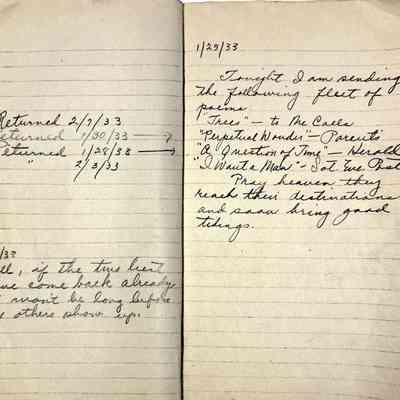 Returned 2/9/33
Returned 1/30/33 →
Returned 1/28/33 →
" 2/3/33
/33
ll, if the two best
ve come back already
t won't be long before
e others show up.
1/25/33
Tonight I am sending
the following fleet of
poems
"Trees" — to McCalls
"Perpetual Wonder" — Parents
"A Question of Time" — Herald
"I Want a Man" - Sat Eve Post
Pray heaven they
reach their destinations
and soon bring good
tidings.